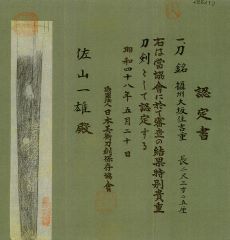 認定書
一、刀 銘 摂州大坂住吉重 長二尺三寸0五厘
右は當協會に於て審査の結果特別貴重
刀剣として認定する
昭和四十八年五月二十日
財團法人日本美術刀剣保存協會
佐山一雄殿